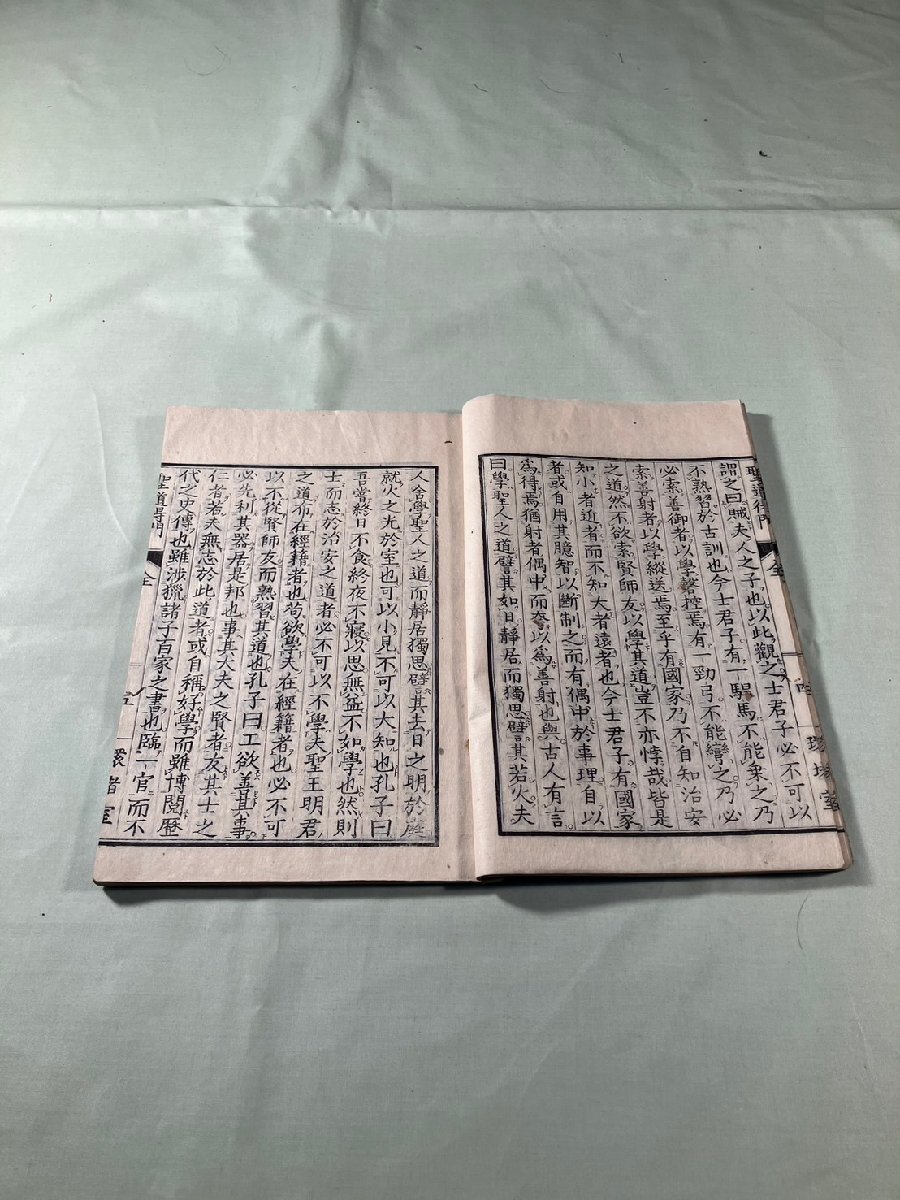 聖道得門
全
四
環堵室
謂之曰賊夫人之子也以此觀之士君子必不可以
不熟習於古訓也今士君子有一駻馬不能乗之乃
必索善御者以學罄控焉有一勁弓不能彎之乃必
索善射者以學縱送焉至乎有國家乃不自知治安
之道然不欲索賢師友以學其道豈不亦悖哉皆是
知小者近者而不知大者遠者也今士君子有國家
者或自用其臆智以斷制之而有偶中於事理自以
爲得焉猶射者偶中而奓以爲善射也與古人有言
曰學聖人之道譬其如日静居而獨思譬其若火夫
人舍學聖人之道而静居獨思譬其去日之明於庭
就火之光於室也可以小見不可以大知也孔子曰
吾嘗終日不食終夜不寢以思無益不如學也然則
士而志於治安之道者必不可以不學夫聖王明君
之道布在經籍者也苟欲學夫在經籍者也必不可
以不從賢師友而熟習其道也孔子曰工欲善其事
必先利其器居是邦也事其大夫之賢者友其士之
仁者若夫無志於此道者或自稱好學而雖博閲歷
代之史傳也雖渉獵諸子百家之書也臨一官而不
聖道得門
全
五
環堵室